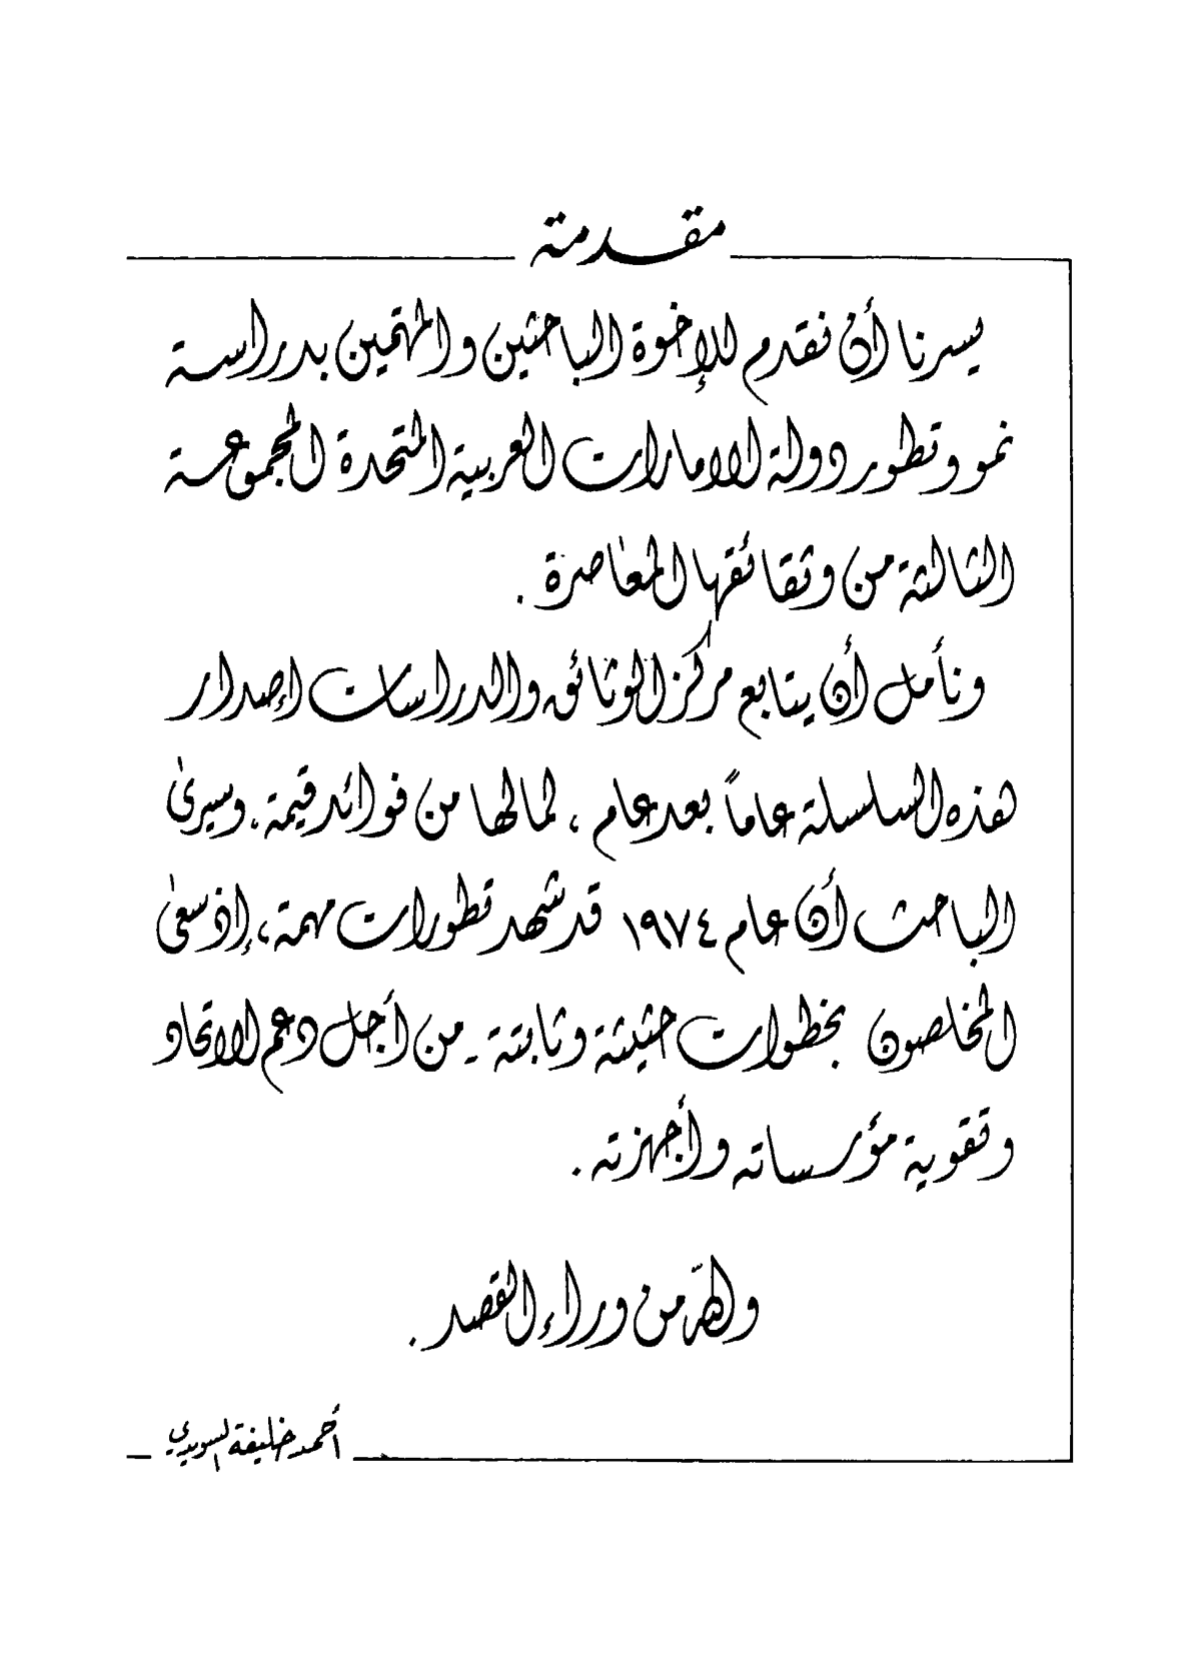 مقدمة
يسرنا أن نقدم للإخوة الباحثين والمهتمين بدراسة
نمو وتطور دولة الامارات العربية المتحدة المجموعة
الثالثة من وثقائقها المعاصرة .
ونأمل أن يتابع مركز الوثائق والدراسات إصدار
هذه السلسلة عاماً بعد عام ، لما لها من فوائد قيمة . وسيرى
الباحث أن عام ١٩٧٤ قد شهد تطورات مهمة ، إذ سعى
المخلصون بخطوات حثيثة وثابتة - من أجل دعم الاتحاد
وتقوية مؤسساته وأجهزته .
والله من وراء القصد .
أحمد خليفة السويدي